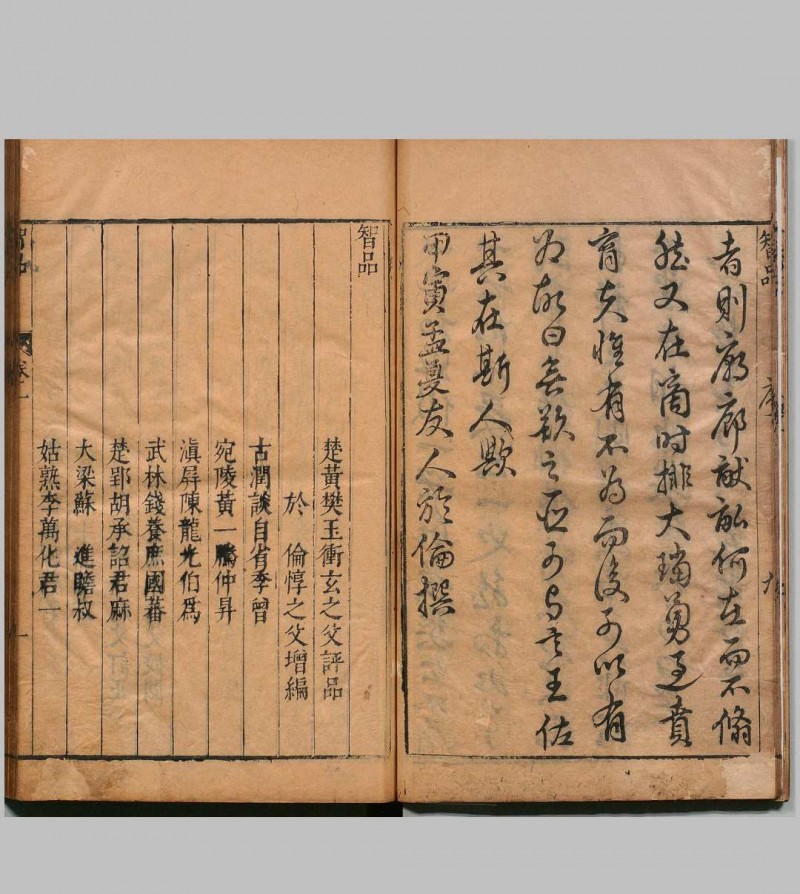 智品
序
九
者則廊廊猷畝何在而不脩
然又在商時排大璫勇過賁
育夫惟有不為而後可以有
為故曰無欲之臣可与言王佐
其在斯人歟
甲寅孟夏友人於倫撰
智品
楚黃樊玉衝玄之父評品
於 倫惇之父增編
古潤談自省季曾
宛陵黃一騰仲昇
滇屏陳龍光伯為
武林錢養庶國蕃
楚郢胡承詔君麻
大梁蘇 進瞻叔
姑熟李萬化君一
智品
卷一
一